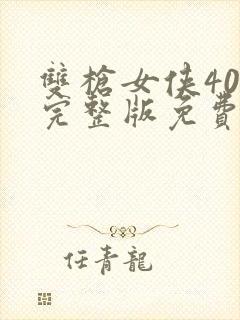 雙槍女俠40
完整版免費
任青龍